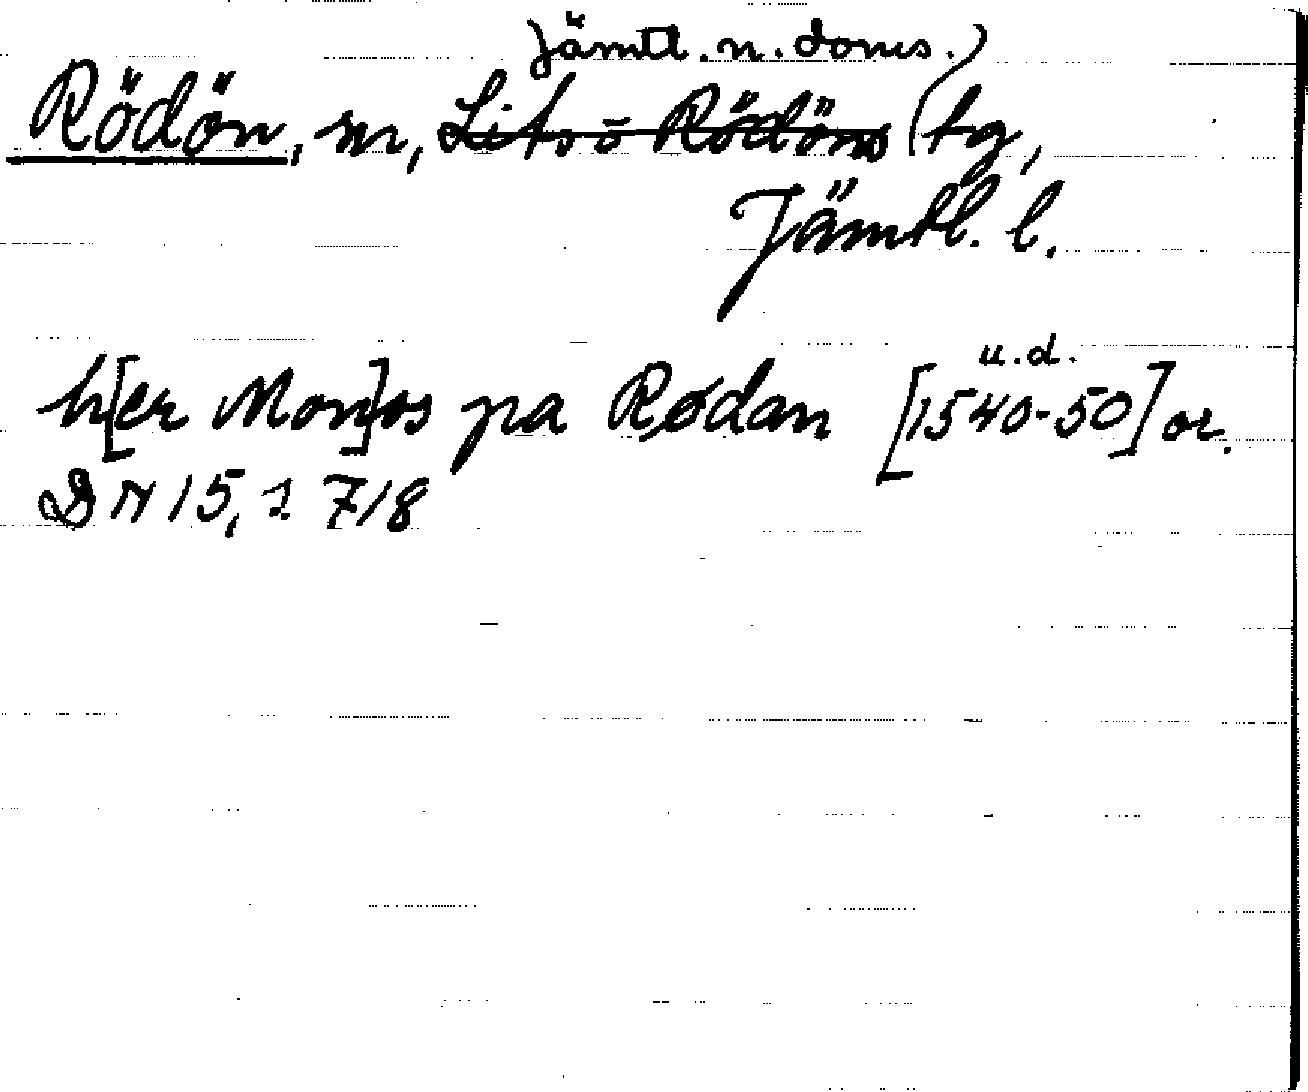 Jämtl. n. doms.
Rödön, sn, Lits o Rödöns tg,
Jämtl. l.
u.d.
h[er Mon]os pa Rødan [1540-50] or.
DN 15, s 718